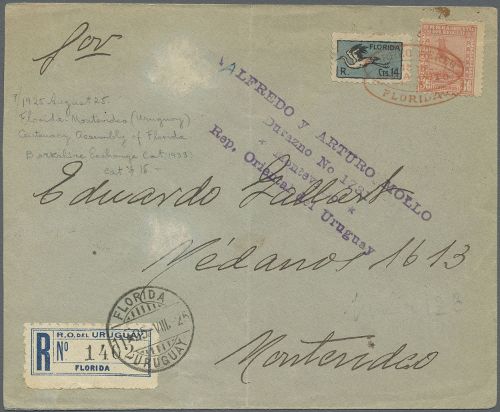 por
FLORIDA
R. Cts. 14
FLORIDA
1925 August 25.
Florida-Montevideo (Uruguay)
Centenary Assembly of Florida
Berkshire Exchange Cat 1933
cat # 15 -
ALFREDO y ARTURO MOLLO
Durazno No.
* Montevideo *
Rep. Oriental del Uruguay
Eduardo
Médanos 1613
Montevideo
FLORIDA
URUGUAY
R.O. DEL URUGUAY
R Nº 1402
FLORIDA